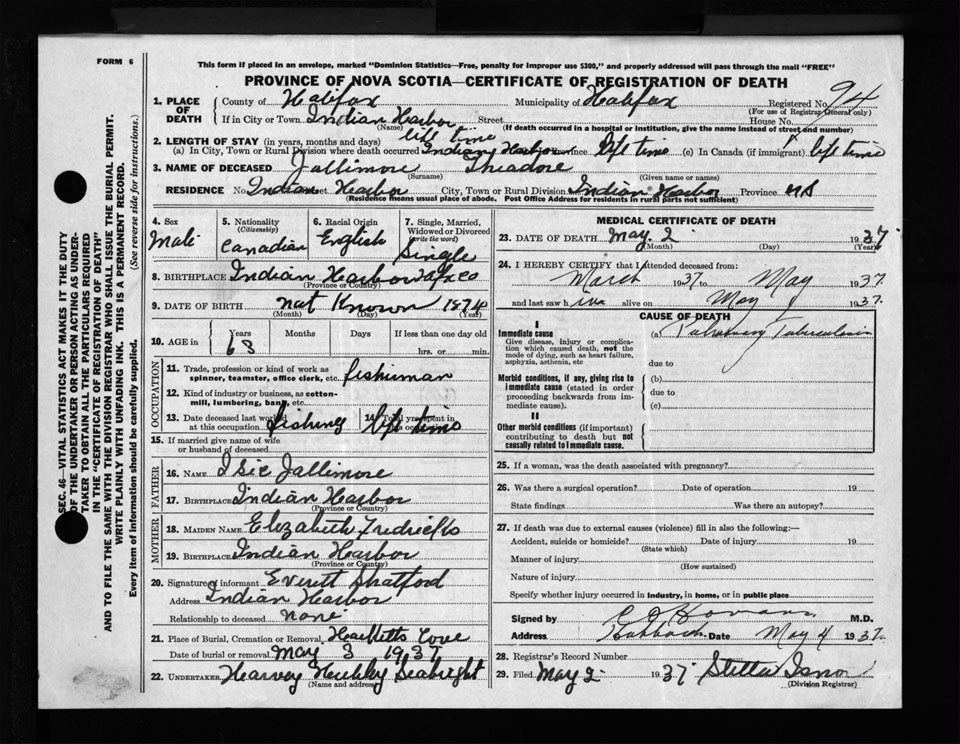 FORM 6
This form if placed in an envelope, marked "Dominion Statistics—Free, penalty for improper use $300," and properly addressed will pass through the mail "FREE"
PROVINCE OF NOVA SCOTIA—CERTIFICATE OF REGISTRATION OF DEATH
SEC. 46—VITAL STATISTICS ACT MAKES IT THE DUTY
OF THE UNDERTAKER OR PERSON ACTING AS UNDER-
TAKER TO OBTAIN ALL THE PARTICULARS REQUIRED
IN THE "CERTIFICATE OF REGISTRATION OF DEATH"
AND TO FILE THE SAME WITH THE DIVISION REGISTRAR WHO SHALL ISSUE THE BURIAL PERMIT.
WRITE PLAINLY WITH UNFADING INK. THIS IS A PERMANENT RECORD.
Every item of information should be carefully supplied. (See reverse side for instructions.)
1. PLACE OF DEATH County of Halifax Municipality of Halifax Registered No. 94
(For use of Registrar General only)
If in City or Town Indian Harbor Street House No.
(Name) (If death occurred in a hospital or institution, give the name instead of street and number)
2. LENGTH OF STAY (in years, months and days) life time
(a) In City, Town or Rural Division where death occurred Indian Harbor Province life time (c) In Canada (if immigrant) life time
3. NAME OF DECEASED Jallimore Theadore
(Surname) (Given name or names)
RESIDENCE No. Indian Street Harbor City, Town or Rural Division Indian Harbor Province NS
(Residence means usual place of abode. Post Office Address for residents in rural parts not sufficient)
4. Sex Male
5. Nationality (Citizenship) Canadian
6. Racial Origin English
7. Single, Married, Widowed or Divorced (write the word) Single
8. BIRTHPLACE Indian Harbor
(Province or Country)
9. DATE OF BIRTH not Known 1874
(Month) (Day) (Year)
10. AGE in Years 63 Months Days If less than one day old hrs. or min.
OCCUPATION
11. Trade, profession or kind of work as
spinner, teamster, office clerk, etc. fisherman
12. Kind of industry or business, as cotton-
mill, lumbering, bank, etc.
13. Date deceased last worked at this occupation fishing 14. Total years spent in this occupation life time
15. If married give name of wife
or husband of deceased
FATHER
16. Name Isic Jallimore
17. Birthplace Indian Harbor
(Province or Country)
MOTHER
18. Maiden Name Elezabeth Fredricks
19. Birthplace Indian Harbor
(Province or Country)
20. Signature of informant Everett Shatford
Address Indian Harbor
Relationship to deceased none
21. Place of Burial, Cremation or Removal Hacketts Cove
Date of burial or removal May 3 1937
22. UNDERTAKER Harvey Hubley Seabright
(Name and address)
MEDICAL CERTIFICATE OF DEATH
23. DATE OF DEATH May 2 1937
(Month) (Day) (Year)
24. I HEREBY CERTIFY that I attended deceased from
March 1937 to May 1937
and last saw him alive on May 1937.
CAUSE OF DEATH
I
Immediate cause
Give disease, injury or complica-
tion which caused death, not the
mode of dying, such as heart failure,
asphyxia, asthenia, etc
(a) Pulmonary Tuberculosis
due to
Morbid conditions, if any, giving rise to
immediate cause (stated in order
proceeding backwards from im-
mediate cause).
(b)
due to
(c)
II
Other morbid conditions (if important)
contributing to death but not
causally related to immediate cause.
25. If a woman, was the death associated with pregnancy?
26. Was there a surgical operation? Date of operation 19
State findings Was there an autopsy?
27. If death was due to external causes (violence) fill in also the following:—
Accident, suicide or homicide? Date of injury 19
(State which)
Manner of injury
(How sustained)
Nature of injury
Specify whether injury occurred in industry, in home, or in public place
Signed by M.D.
Address Date May 4 1937
28. Registrar's Record Number
29. Filed May 2 1937 Stella Isnor
(Division Registrar)